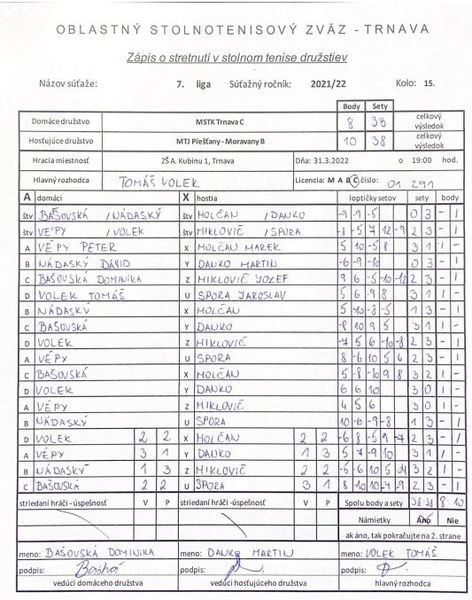 OBLASTNÝ STOLNOTENISOVÝ ZVÄZ - TRNAVA
Zápis o stretnutí v stolnom tenise družstiev
Názov súťaže: 7. liga Súťažný ročník: 2021/22 Kolo: 15.
Body Sety
Domáce družstvo MSTK Trnava C 8 38 celkový výsledok
Hosťujúce družstvo MTJ Piešťany - Moravany B 10 38 celkový výsledok
Hracia miestnosť ZŠ A. Kubinu 1, Trnava Dňa: 31.3.2022 o 19:00 hod.
Hlavný rozhodca TOMÁŠ VOLEK Licencia: M A B C číslo: 01 291
A domáci X hostia loptičky setov sety body
štv BAŠOVSKÁ / NÁDASKÝ štv HOLČAN / DANKO -9 -9 -5 0 3 - /
štv VÉPY / VOLEK štv MIKLOVIČ / SPORA -8 -5 7 12 -9 2 3 - /
A VÉPY PETER X HOLČAN MAREK 5 10 -5 8 3 1 / -
B NÁDASKÝ DÁVID Y DANKO MARTIN -6 -9 -6 0 3 - /
C BAŠOVSKÁ DOMINIKA Z MIKLOVIČ JOZEF 9 6 -5 -10 -12 2 3 - /
D VOLEK TOMÁŠ U SPORA JAROSLAV 5 6 -9 8 3 1 / -
B NÁDASKÝ X HOLČAN 3 1 / -
C BAŠOVSKÁ Y DANKO -8 10 9 5 3 1 / -
D VOLEK Z MIKLOVIČ -7 5 6 -10 -8 2 3 - /
A VÉPY U SPORA 2 3 - /
C BAŠOVSKÁ X HOLČAN 5 -8 -10 9 8 3 2 / -
D VOLEK Y DANKO 6 6 10 3 0 / -
A VÉPY Z MIKLOVIČ 4 5 6 3 0 / -
B NÁDASKÝ U SPORA 10 -6 -9 -8 1 3 - /
D VOLEK 2 2 X HOLČAN 2 2 -6 8 -5 9 -7 2 3 - /
A VÉPY 3 1 Y DANKO 1 3 5 -7 -9 -10 1 3 - /
B NÁDASKÝ 1 3 Z MIKLOVIČ 2 2 3 2 / -
C BAŠOVSKÁ 2 2 U SPORA 3 1 8 -10 10 -4 -9 2 3 - /
striedaní hráči - úspešnosť V P striedaní hráči - úspešnosť V P Spolu body a sety 38:38 8:10
Námietky Áno Nie
ak áno, tak pokračujte na 2. strane
meno: BAŠOVSKÁ DOMINIKA meno: DANKO MARTIN meno: VOLEK TOMÁŠ
podpis: podpis: podpis:
vedúci domáceho družstva vedúci hosťujúceho družstva hlavný rozhodca